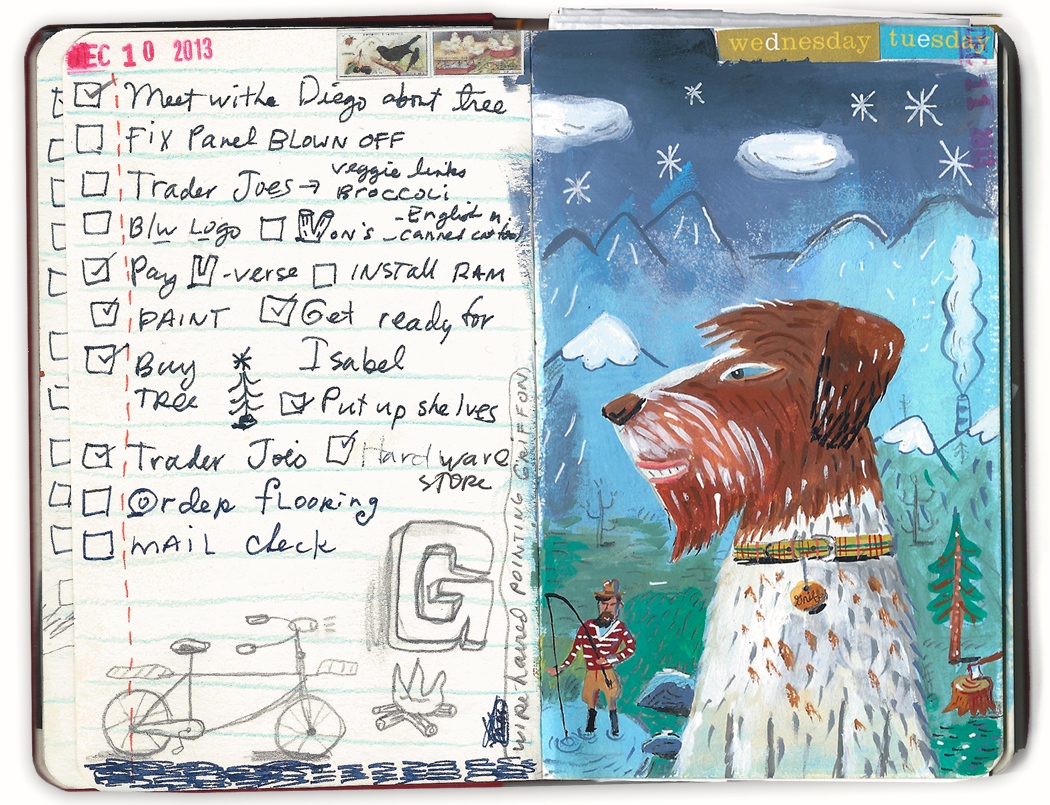 DEC 10 2013
Meet withe Diego about tree
Fix Panel BLOWN OFF
Trader Joes → veggie links
BROCCOLI
B/w Logo
VON'S - English
- canned
Pay U-verse
INSTALL RAM
PAINT
Get ready for
Isabel
Buy
TREE
Put up shelves
Trader Jois
Hardware
STORE
Order flooring
MAIL check
G
WIRE haired POINTING GRIFFON
wednesday
tuesday
Griff